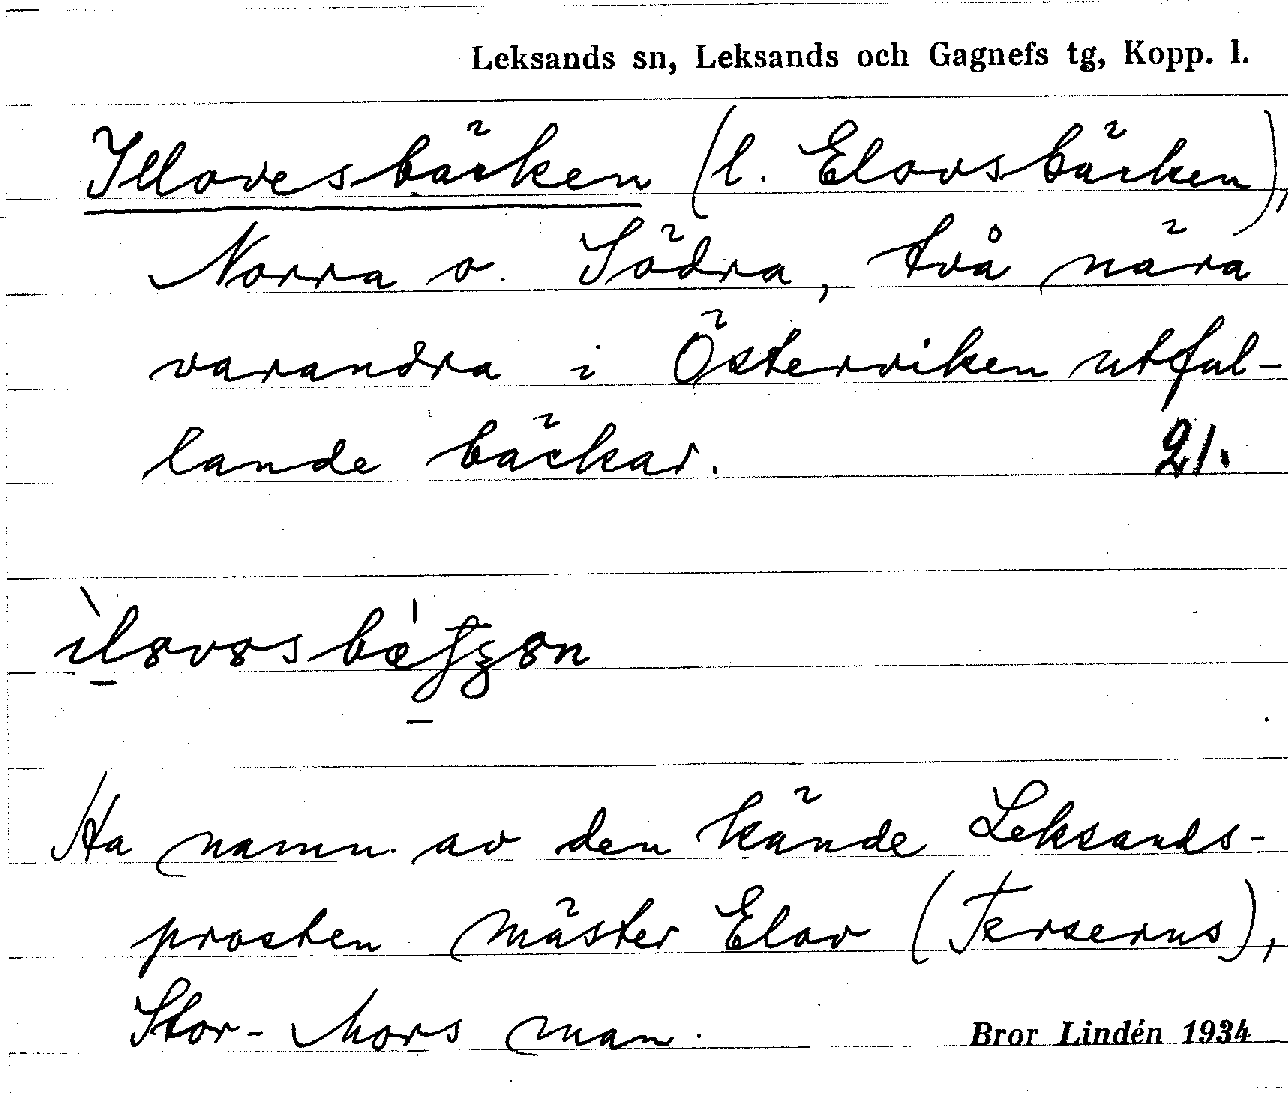 Leksands sn, Leksands och Gagnefs tg, Kopp. l.
Illovesbäcken (l. Elovsbäcken),
Norra o. Södra, två nära
varandra i Österviken utfal-
lande bäckar. 21.
Ha namn av den kände Leksands-
prosten mäster Elov (Terserus),
Stor-Mors man.
Bror Lindén 1934